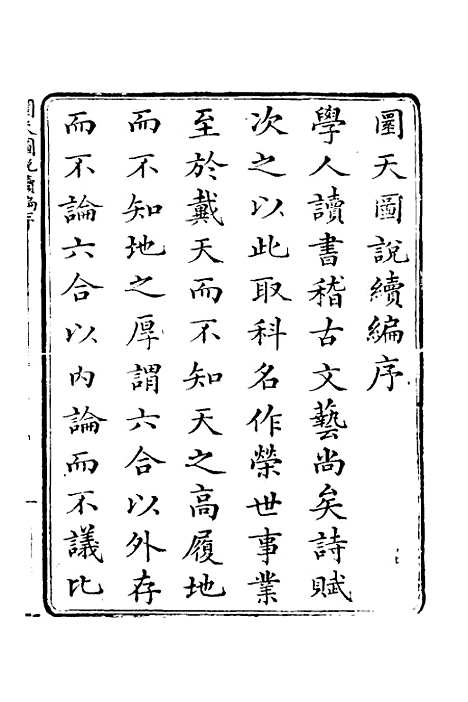 圜天圖說續編序
學人讀書稽古文藝尚矣詩賦
次之以此取科名作榮世事業
至於戴天而不知天之高履地
而不知地之厚謂六合以外存
而不論六合以內論而不議比
圜天圖說續編序
一